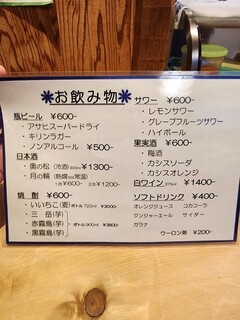 ✳お飲み物✳
瓶ビール ¥600-
・アサヒスーパードライ
・キリンラガー
・ノンアルコール ¥500-
日本酒
・奥の松 (冷酒) 300ml ¥1300-
・月の輪 (熱燗or常温)
1合¥600- 2合¥1200-
焼酎
・いいちこ(麦) ボトル720ml ¥3000-
・三岳(芋)
・赤霧島(芋) ボトル900ml ¥3800-
・黒霧島(芋)
サワー ¥600-
・レモンサワー
・グレープフルーツサワー
・ハイボール
果実酒 ¥600-
・梅酒
・カシスソーダ
・カシスオレンジ
白ワイン ¥1400-
ソフトドリンク ¥400-
オレンジジュース コカコーラ
ジンジャーエール サイダー
ガラナ
ウーロン茶 ¥200-